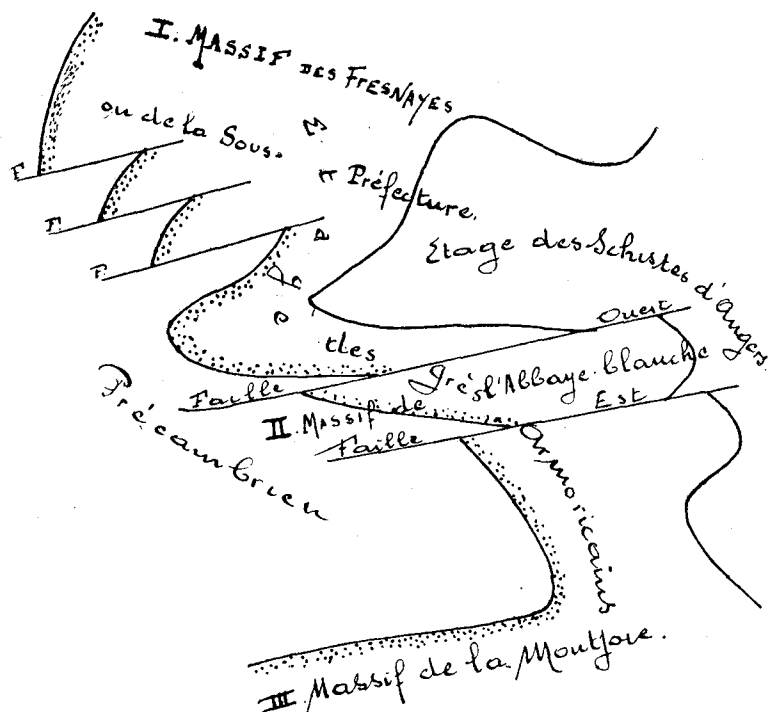 I. MASSIF DES FRESNAYES
ou de la Sous.
Préfecture.
F.
F.
F.
Etage des Schistes d'Angers.
Ouest
Faille
Grés
l'Abbaye-blanche
II. Massif de
Est
Faille
Précambrien
et les
Armoricains
III Massif de la Montjoie.